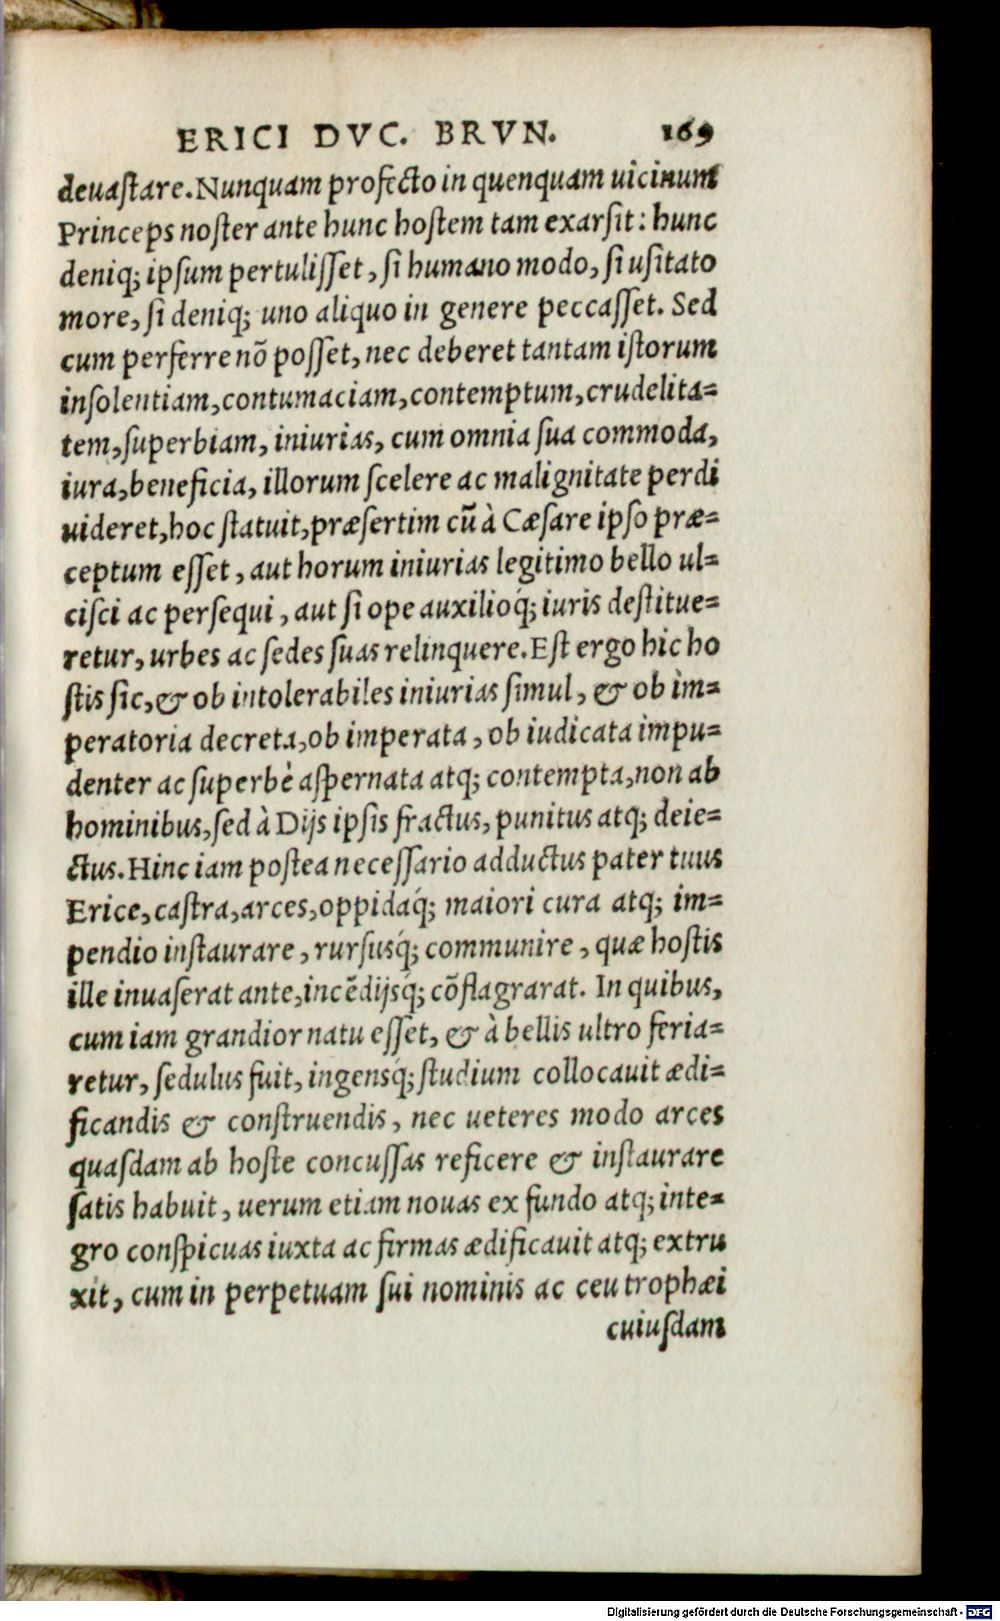 ERICI DVC. BRVN. 169
deuaſtare. Nunquam profecto in quenquam uicinum
Princeps noſter ante hunc hoſtem tam exarſit: hunc
deniq; ipſum pertuliſſet, ſi humano modo, ſi uſitato
more, ſi deniq; uno aliquo in genere peccaſſet. Sed
cum perferre nõ poſſet, nec deberet tantam iſtorum
inſolentiam, contumaciam, contemptum, crudelita=
tem, ſuperbiam, iniurias, cum omnia ſua commoda,
iura, beneficia, illorum ſcelere ac malignitate perdi
uideret, hoc ſtatuit, præſertim cũ à Cæſare ipſo præ=
ceptum eſſet, aut horum iniurias legitimo bello ul=
ciſci ac perſequi, aut ſi ope auxilioq́; iuris deſtitue=
retur, urbes ac ſedes ſuas relinquere. Eſt ergo hic ho
ſtis ſic, & ob intolerabiles iniurias ſimul, & ob im=
peratoria decreta, ob imperata, ob iudicata impu=
denter ac ſuperbè aſpernata atq; contempta, non ab
hominibus, ſed à Dijs ipſis fractus, punitus atq; deie=
ctus. Hinc iam poſtea neceſſario adductus pater tuus
Erice, caſtra, arces, oppidaq́; maiori cura atq; im=
pendio inſtaurare, rurſusq́; communire, quæ hoſtis
ille inuaſerat ante, incẽdijsq́; cõflagrarat. In quibus,
cum iam grandior natu eſſet, & à bellis ultro feria=
retur, ſedulus fuit, ingensq́; ſtudium collocauit ædi=
ficandis & conſtruendis, nec ueteres modo arces
quaſdam ab hoſte concuſſas reficere & inſtaurare
ſatis habuit, uerum etiam nouas ex fundo atq; inte=
gro conſpicuas iuxta ac firmas ædificauit atq; extru
xit, cum in perpetuam ſui nominis ac ceu trophæi
cuiuſdam
Digitalisierung gefördert durch die Deutsche Forschungsgemeinschaft - DFG